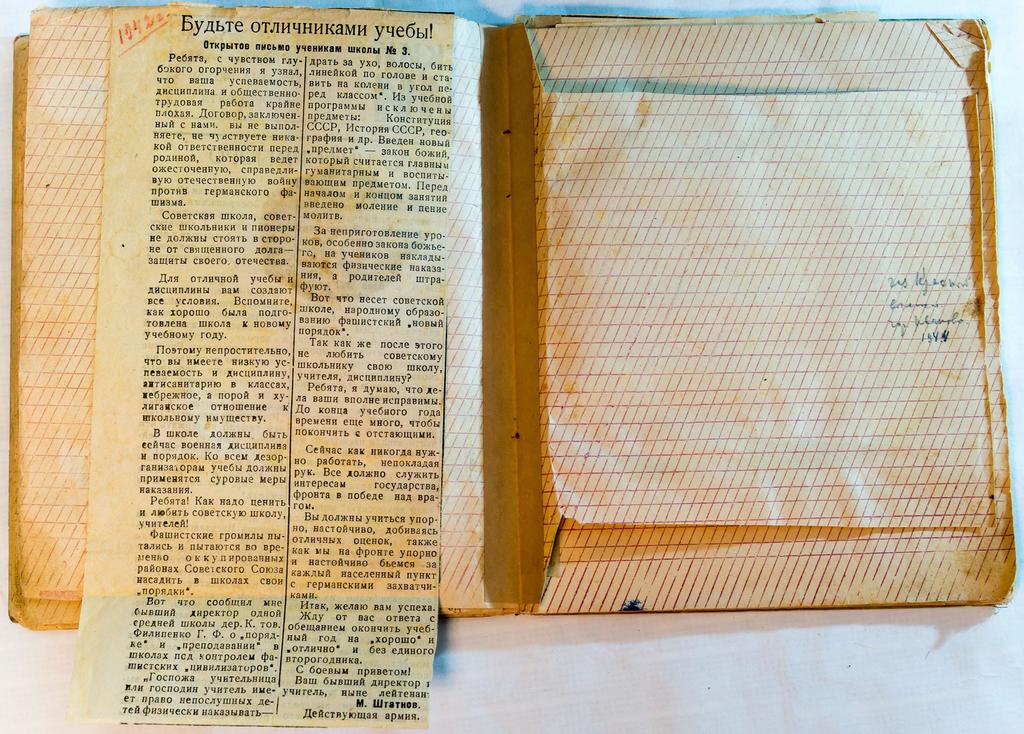 1942г
Будьте отличниками учебы!
Открытое письмо ученикам школы № 3.
Ребята, с чувством глу-
бокого огорчения я узнал,
что ваша успеваемость,
дисциплина и общественно-
трудовая работа крайне
плохая. Договор, заключен-
ный с нами, вы не выпол-
няете, не чувствуете ника-
кой ответственности перед
родиной, которая ведет
ожесточенную, справедли-
вую отечественную войну
против германского фа-
шизма.
Советская школа, совет-
ские школьники и пионеры
не должны стоять в сторо-
не от священного долга—
защиты своего, отечества.
Для отличной учебы и
дисциплины вам создают
все условия. Вспомните,
как хорошо была подго-
товлена школа к новому
учебному году.
Поэтому непростительно,
что вы имеете низкую ус-
певаемость и дисциплину,
антисанитарию в классах,
небрежное, а порой и ху-
лиганское отношение к
школьному имуществу.
В школе должны быть
сейчас военная дисциплина
и порядок. Ко всем дезор-
ганизаторам учебы должны
применятся суровые меры
наказания.
Ребята! Как надо ценить
и любить советскую школу,
учителей!
Фашистские громилы пы-
тались и пытаются во вре-
менно оккупированных
районах Советского Союза
насадить в школах свои
„порядки“.
Вот что сообщил мне
бывший директор одной
средней школы дер. К. тов.
Филипенко Г. Ф. о „поряд-
ке“ и „преподавании“ в
школах под контролем фа-
шистских „цивилизаторов“.
„Госпожа учительница
или господин учитель име-
ет право непослушных де-
тей физически наказывать—
драть за ухо, волосы, бить
линейкой по голове и ста-
вить на колени в угол пе-
ред классом“. Из учебной
программы исключены
предметы: Конституция
СССР, История СССР, гео-
графия и др. Введен новый
„предмет“ — закон божий,
который считается главным
гуманитарным и воспиты-
вающим предметом. Перед
началом и концом занятий
введено моление и пение
молитв.
За неприготовление уро-
ков, особенно закона божье-
го, на учеников наклады-
ваются физические наказа-
ния, а родителей штра-
фуют.
Вот что несет советской
школе, народному образо-
ванию фашистский „новый
порядок“.
Так как же после этого
не любить советскому
школьнику свою школу,
учителя, дисциплину?
Ребята, я думаю, что де-
ла ваши вполне исправимы.
До конца учебного года
времени еще много, чтобы
покончить с отстающими.
Сейчас как никогда нуж-
но работать, непокладая
рук. Все должно служить
интересам государства,
фронта в победе над вра-
гом.
Вы должны учиться упор-
но, настойчиво, добиваясь
отличных оценок, также
как мы на фронте упорно
и настойчиво бьемся за
каждый населенный пункт
с германскими захватчи-
ками.
Итак, желаю вам успеха.
Жду от вас ответа с
обещанием окончить учеб-
ный год на „хорошо“ и
„отлично“ и без единого
второгодника.
С боевым приветом!
Ваш бывший директор и
учитель, ныне лейтенант
М. Штатнов.
Действующая армия.
1944